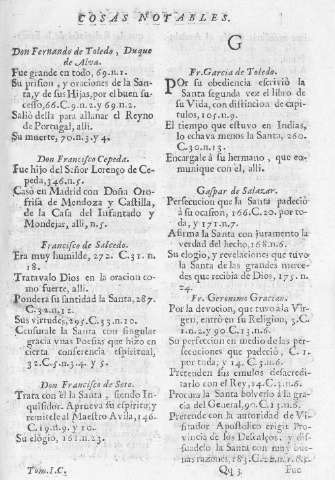 COSAS NOTABLES.
Don Fernando de Toledo, Duque
de Alva.
Fue grande en todo, 69.n.1.
Su prision, y oraciones de la San-
ta, y de sus Hijas, por el buen su-
cesso, 66.C.9.n.2. y 69.n.2.
Saliò della para allanar el Reyno
de Portugal, alli.
Su muerte, 70.n.3.y 4.
Don Francisco Cepeda.
Fue hijo del Señor Lorenço de Ce-
peda, 346.n.5.
Casò en Madrid con Doña Oro-
frisa de Mendoza y Castilla,
de la Casa del Infantado y
Mondejar, alli, n.5.
Francisco de Salcedo.
Era muy humilde, 272. C.31. n.
18.
Tratavalo Dios en la oracion co-
mo fuerte, alli.
Pondera su santidad la Santa, 287.
C.32.n.12.
Sus virtudes, 295.C.33.n.10.
Censurale la Santa con singular
gracia vnas Poesias que hizo en
cierta conferencia espiritual,
32.C.5.n.3.4. y 5.
Don Francisco de Soto.
Trata con èl la Santa, siendo In-
quisidor. Aprueva su espiritu, y
remitele al Maestro Avila, 146.
C.19.n.9. y 10.
Su elogio, 161.n.23.
Tom.I.C.
G
Fr. Garcia de Toledo.
POr su obediencia escriviò la
Santa segunda vez el libro de
su Vida, con distincion de capi-
tulos, 105.n.9.
El tiempo que estuvo en Indias,
lo echava menos la Santa, 260.
C.30.n.13.
Encargale à su hermano, que co-
munique con èl, alli.
Gaspar de Salazar.
Persecucion que la Santa padeciò
à su ocasion, 166.C.20. por to-
da, y 171.n.7.
Afirma la Santa con juramento la
verdad del hecho, 168.n.6.
Su elogio, y revelaciones que tuvo
la Santa de las grandes merce-
des que recibia de Dios, 175. n.
24.
Fr. Geronimo Gracian.
Por la devocion, que tuvo à la Vir-
gen, entrò en su Religion, 3.C.
1.n.2.y 90 C.13.n.6.
Su perfeccion en medio de las per-
secuciones que padeciò, C. 1.
por toda, y 14. C.3.n.6.
Pretenden sus emulos desacredi-
tarlo con el Rey, 14.C.3.n.6.
Procura la Santa bolverlo à la gra-
cia del General, 90.C.13.n.6.
Pretende con la autoridad de Vi-
sitador Apostolico erigir Pro-
vincia de los Descalços, y di-
suadelo la Santa con muy bue-
nas razones, 183.C.22.n.1.8.2.
Qq 3 Fue